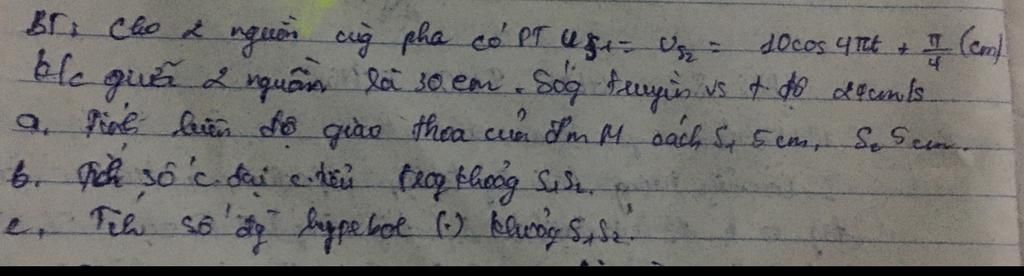 BT: Cho 2 nguồn cùg pha có PT U_S1 = U_S2 = 10cos 4πt + π/4 (cm)
k/c giữa 2 nguồn là 30cm. Sóg truyền vs t. độ 24cm/s
a, Tính biên độ giao thoa của đ'm M cách S1 5cm, S2 5cm.
b. Tính số c.đại c.tiểu trog khoảg S1S2.
c, Tính số đg hypebol (.) khoảg S1S2.